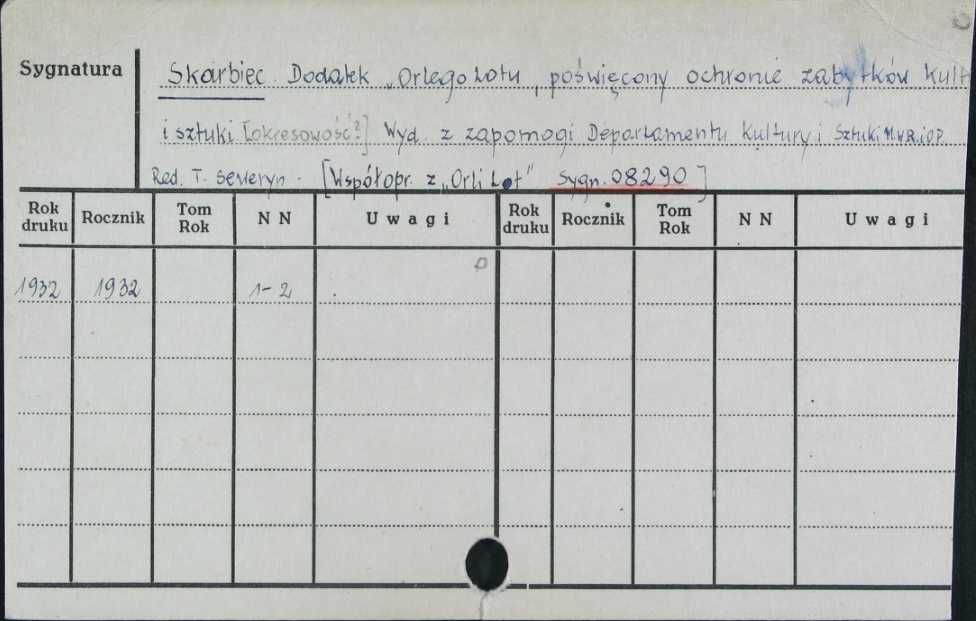 Sygnatura
Skarbiec. Dodatek „Orlego Lotu, poświęcony ochronie zabytków Kult
i sztuki [okresowość?] Wyd. z zapomogi Departamentu Kultury i Sztuki M.W.R.iO.P.
Red. T. Seweryn. [Współopr. z „Orli Lot" Sygn. 08290]
Rok druku Rocznik Tom Rok N N Uwagi Rok druku Rocznik Tom Rok N N Uwagi
1932 1932 1-2